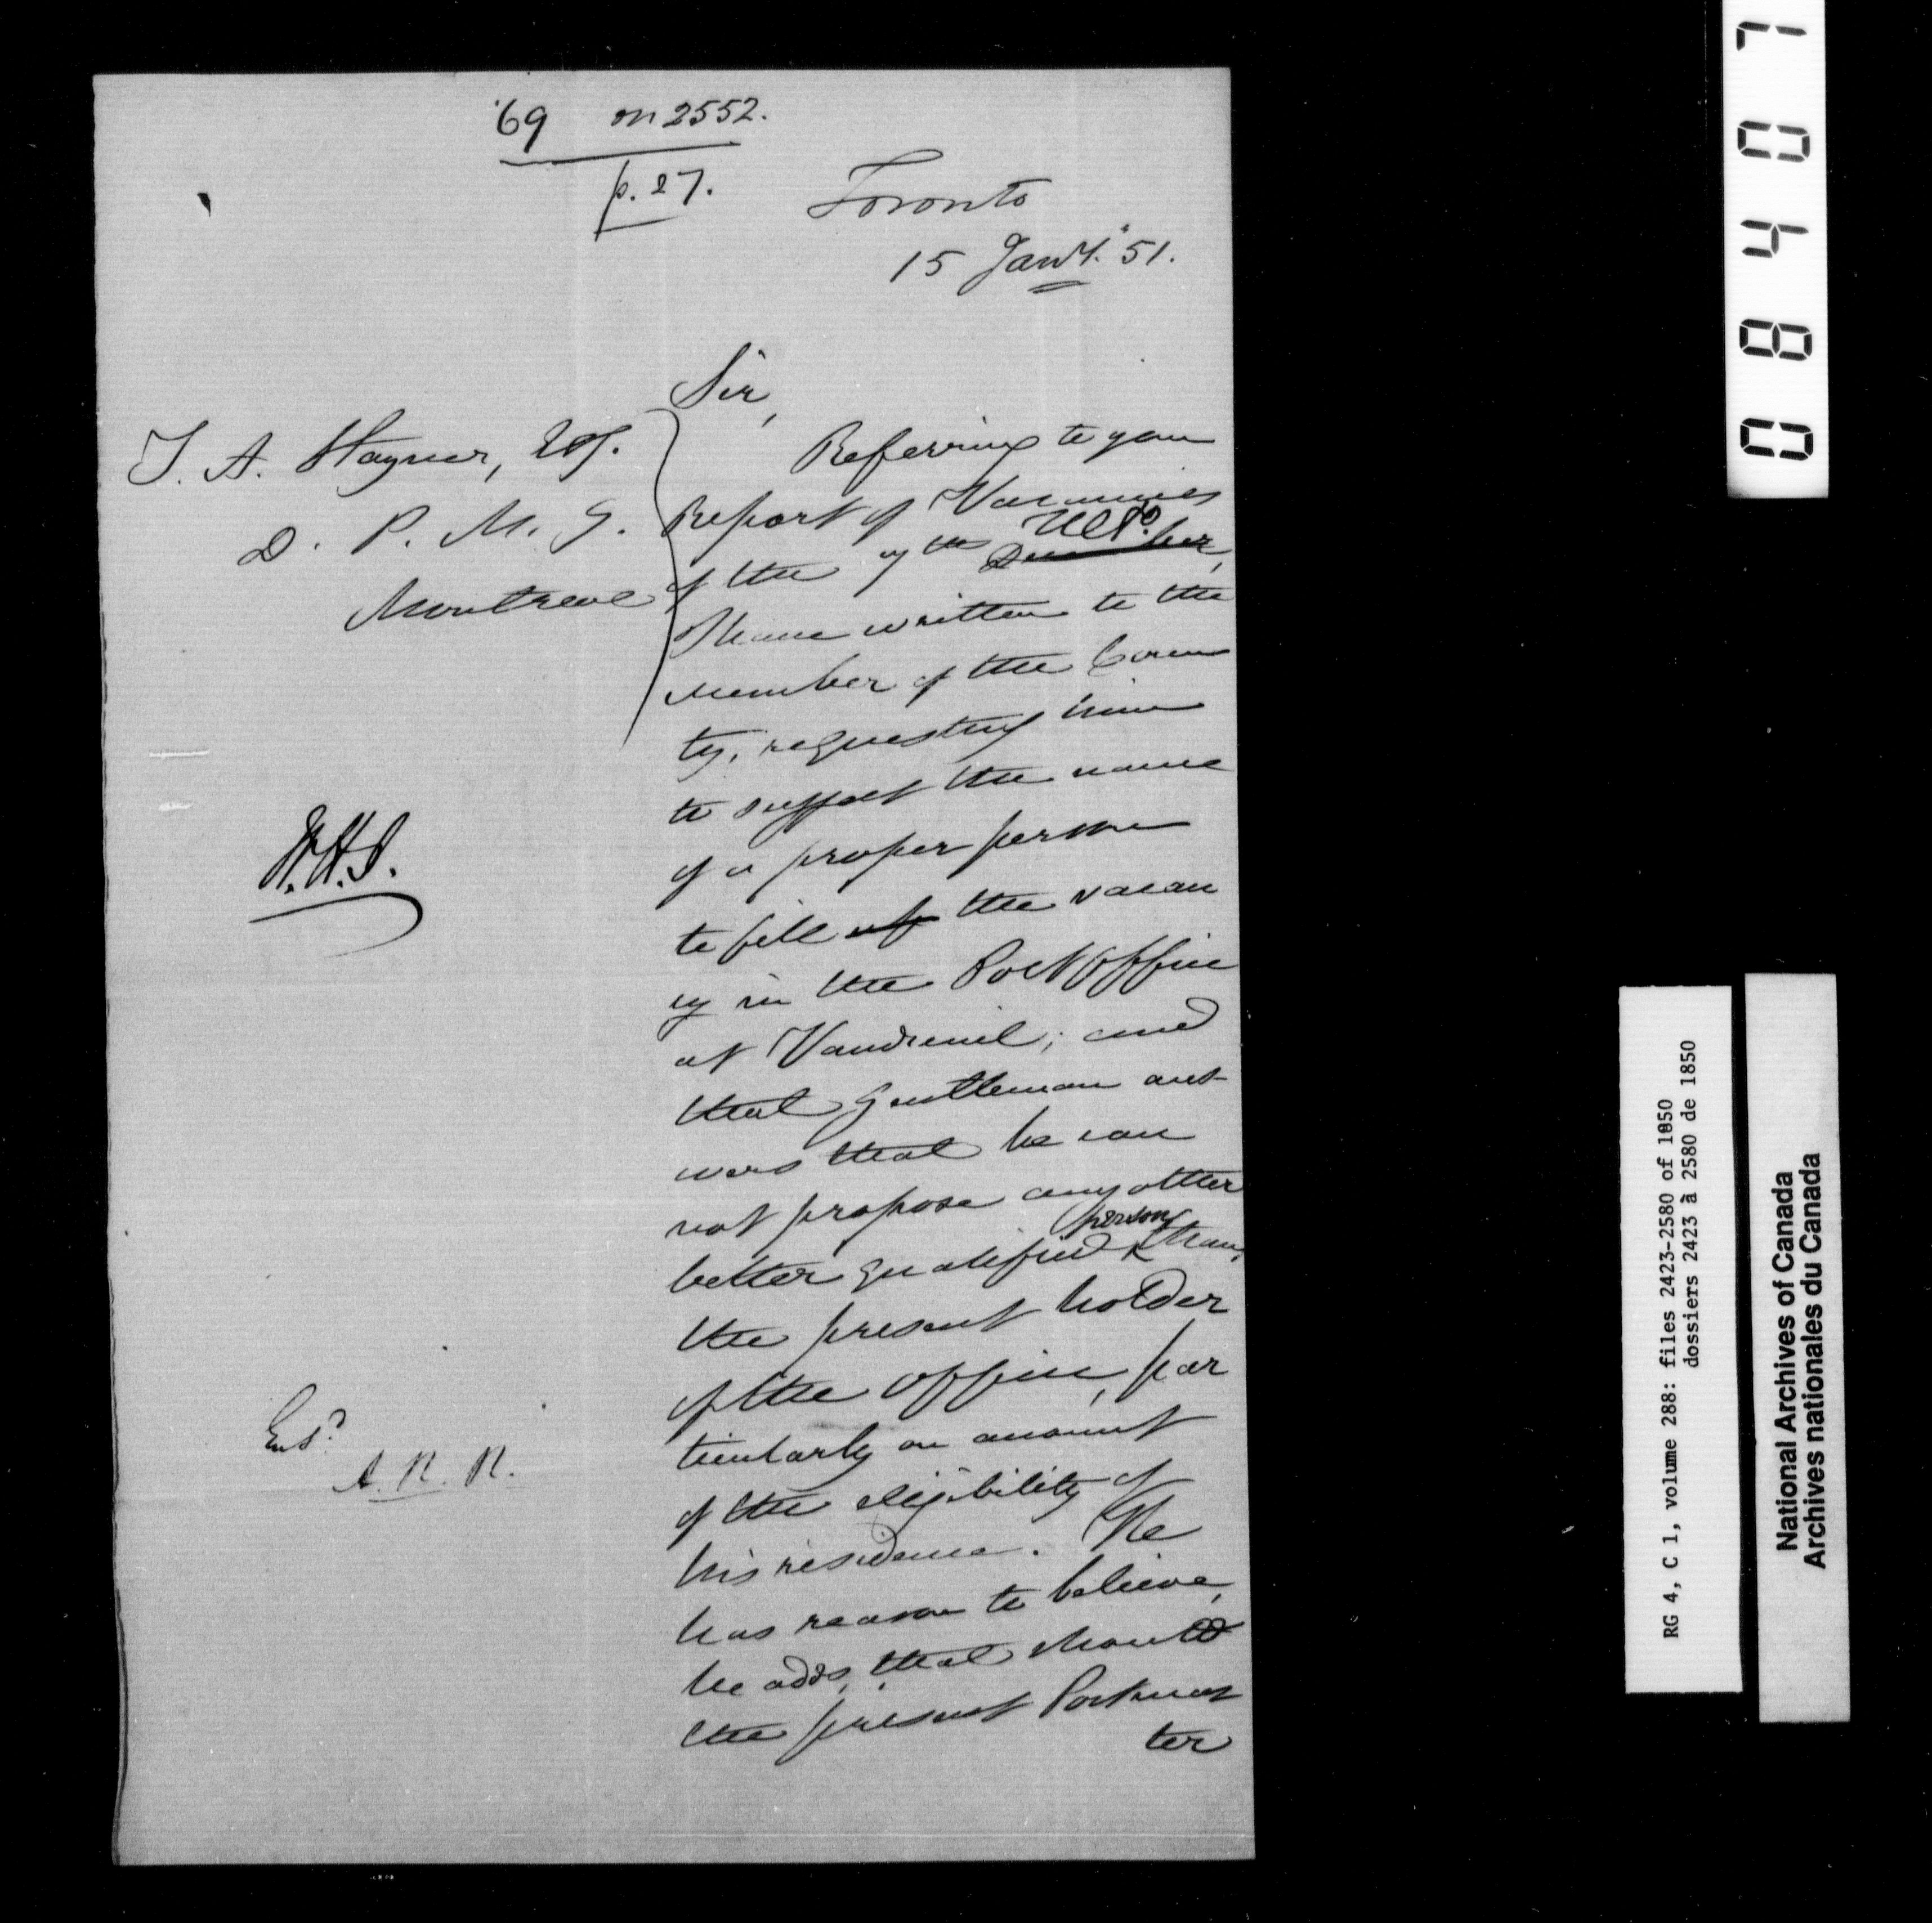 '69 on 2552.
p. 27.
Toronto
15 Jany. '51.
Sir,
T. A. Stayner, Esq.
D. P. M. G.
Montreal
Referring to your
Report of Vacancies
of the 7th Ulto.
December,
I have written to the
Member of the Coun
ty, requesting him
to suggest the name
of a proper person
to fill up the vacan
cy in the Post Office
at Vaudreuil; and
that Gentleman ans-
wers that he can
not propose any other
person
better qualified than,
the present holder
of the office, par
ticularly on account
of the eligibility of
his residence. He
has reason to believe,
he adds, that should
the present Postmas
ter
Entd.
A. R. R.
08407
RG 4, C 1, volume 288: files 2423-2580 of 1850
dossiers 2423 à 2580 de 1850
National Archives of Canada
Archives nationales du Canada